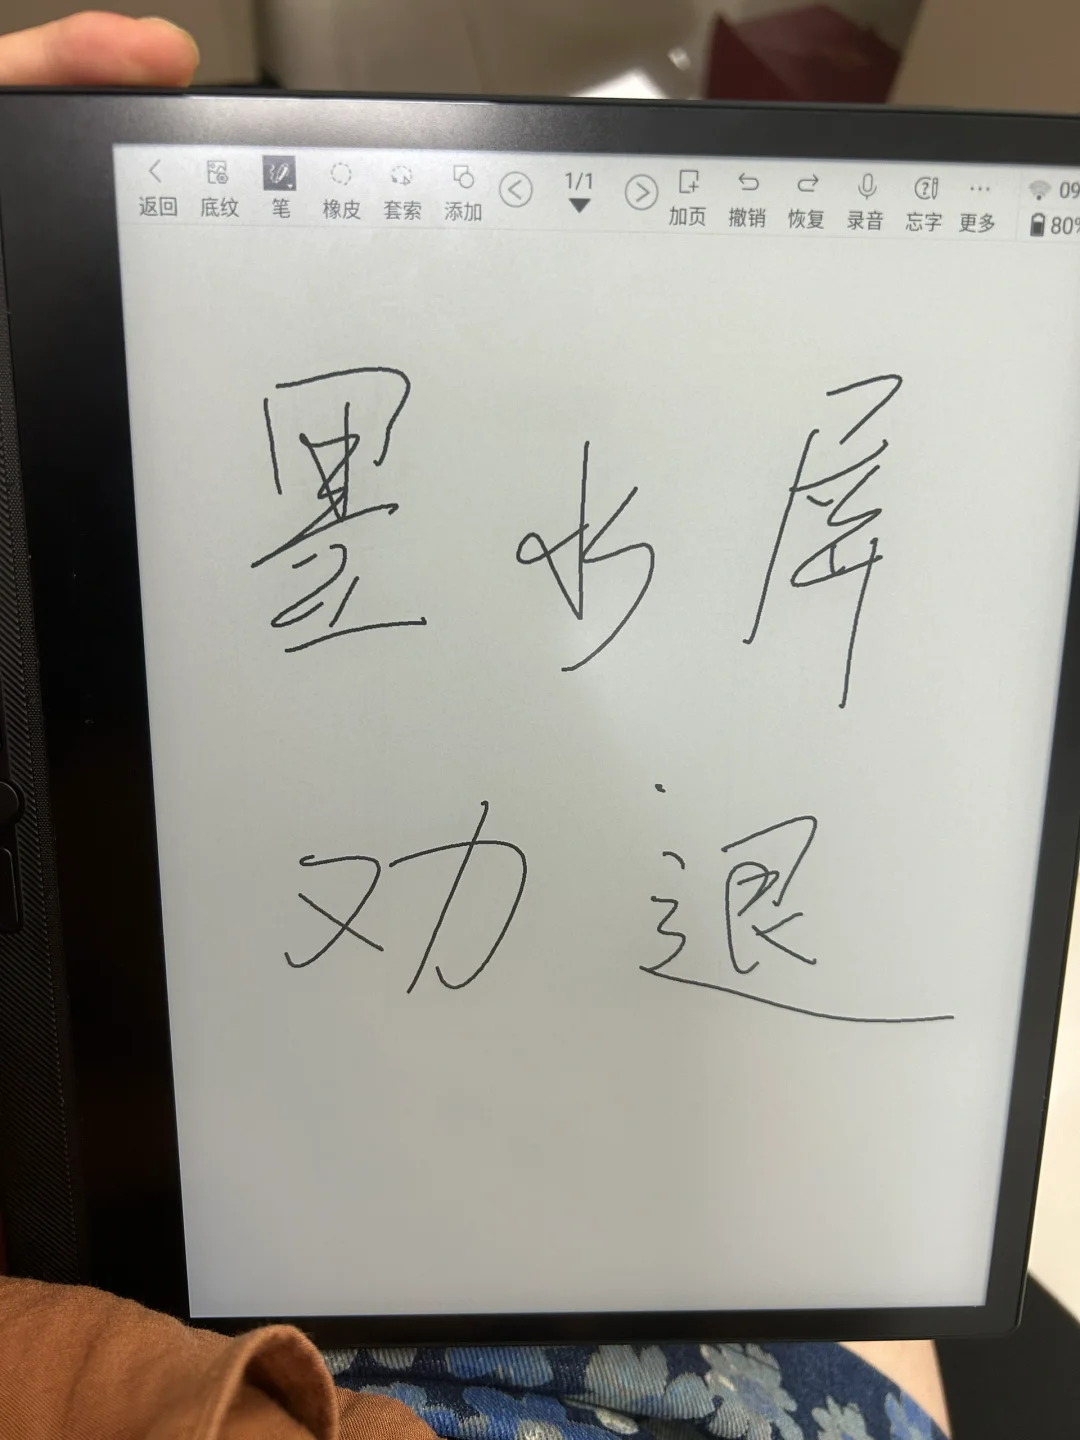 返回 底纹 笔 橡皮 套索 添加 1/1 加页 撤销 恢复 录音 忘字 更多 09
80%
墨水屏
劝退